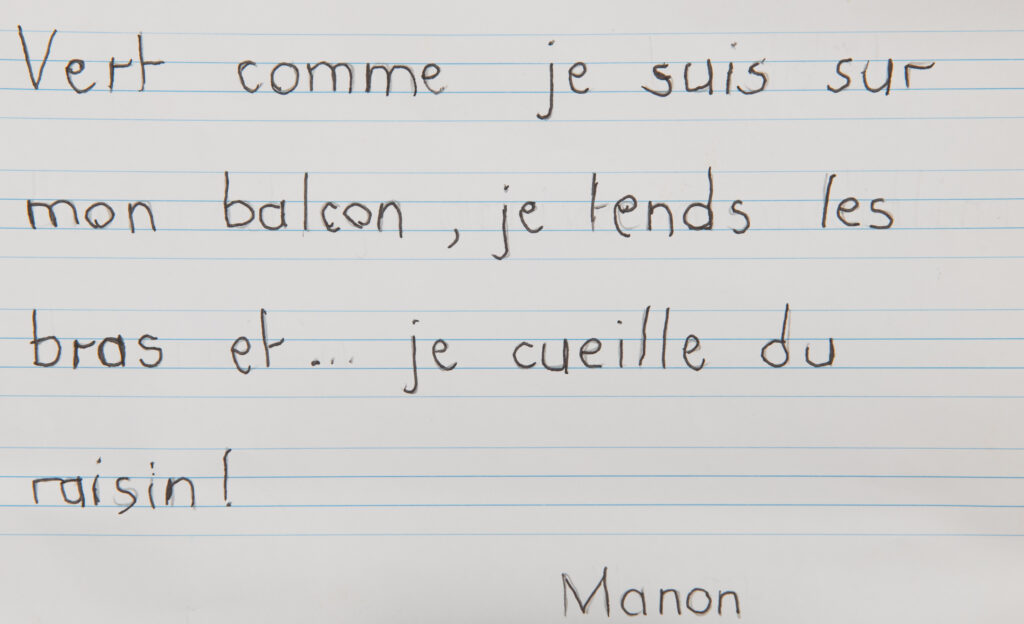 Vert comme je suis sur
mon balcon, je tends les
bras et... je cueille du
raisin!
Manon